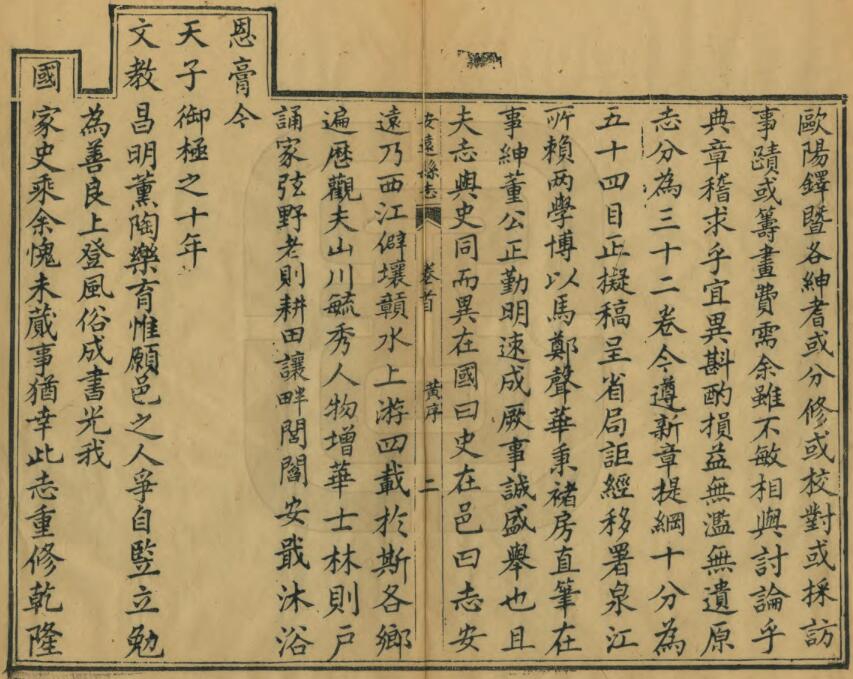 歐陽鐸暨各紳耆或分修或校對或採訪
事蹟或籌畫費需余雖不敏相與討論乎
典章稽求乎宜異斟酌損益無濫無遺原
志分為三十二卷今遵新章提綱十分為
五十四目止擬稿呈省局詎經移署泉江
所賴两學博以馬鄭聲華秉褚房直筆在
事紳董公正勤明速成厥事誠盛舉也且
夫志與史同而異在國曰史在邑曰志安
安遠縣志 卷首 黃序 二
遠乃西江僻壤贛水上游四載於斯各鄉
遍歷觀夫山川毓秀人物增華士林則户
誦家弦野老則耕田讓畔閭閻安戢沐浴
恩膏今
天子御極之十年
文教昌明薰陶樂育惟願邑之人爭自豎立勉
為善良上登風俗成書光我
國家史乘余愧未蕆事猶幸此志重修乾隆